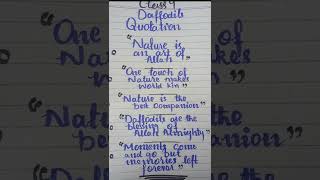 Class 9
Daffodils
Quotation
"Nature is
an art of
Allah"
"One touch of
Nature makes
World kin"
"Nature is the
best Companion"
"Daffodils are the
blessing of
Allah Almighty"
"Moments come
and go but
memories left
forever"